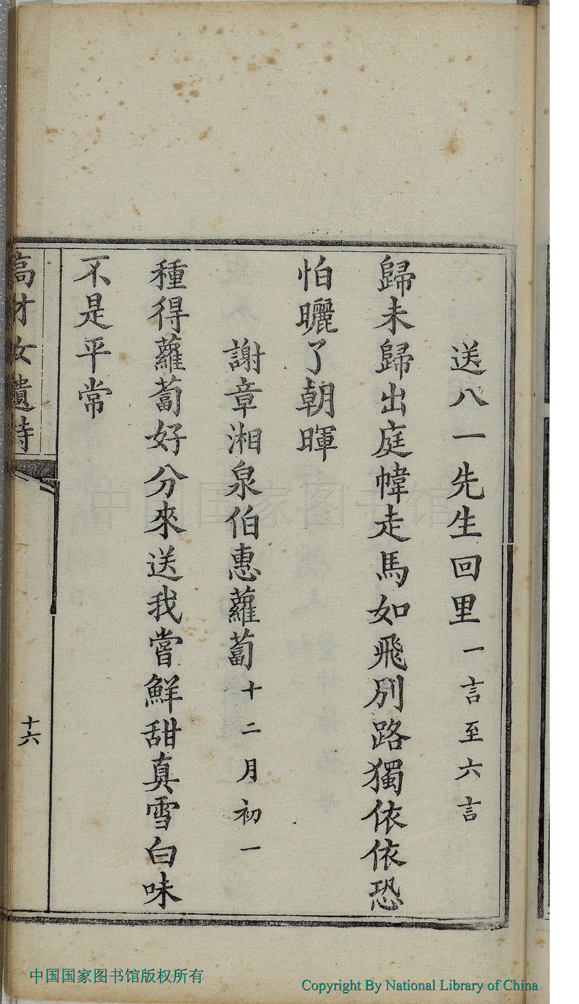 送八一先生回里一言至六言
歸未歸出庭幃走馬如飛別路獨依依恐
怕曬了朝暉
謝章湘泉伯惠蘿蔔十二月初一
種得蘿蔔好分來送我嘗鮮甜真雪白味
不是平常
高才女遺詩
十六
中国国家图书馆
中国国家图书馆版权所有
Copyright By National Library of China